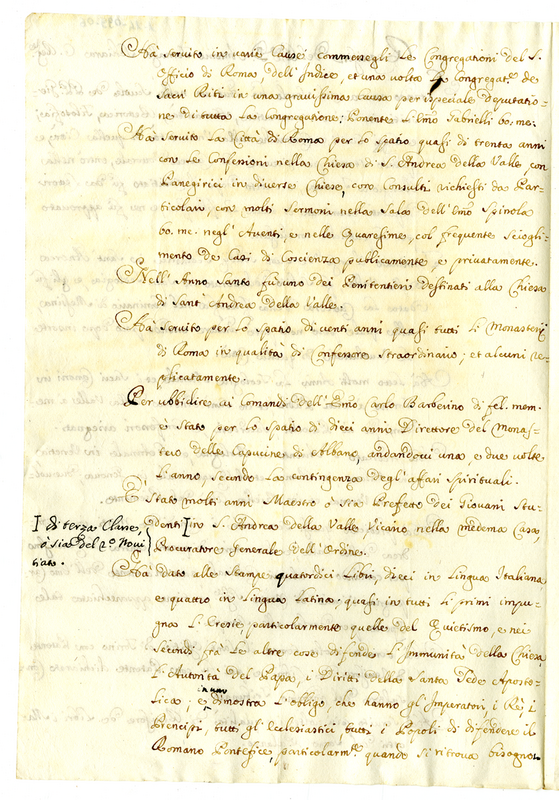 Hà servito in varie Cause commessegli le Congregationi del S.
Officio di Roma, dell'Indice, et una volta la Congregat.e de
Sacri Riti in una gravissima Causa per ispeciale deputatio-
ne di tutta la Congregatione; Ponente l'Emo Gabrielli bo: me:
Hà servito la Città di Roma per lo spatio quasi di trenta anni
con le Confessioni nella Chiesa di S. Andrea della Valle, con
Panegirici in diverse Chiese, con Consulti richiesti da Par-
ticolari, con molti Sermoni nella Sala dell'Emo Spinola
bo. me. negl'Aventi, e nelle Quaresime, col frequente sciogli-
mento de Casi di Coscienza publicamente e privatamente.
Nell'Anno Santo fù uno dei Penitentieri destinati alla Chiesa
di Sant'Andrea della Valle.
Hà servito per lo spatio di venti anni quasi tutti li Monasterij
di Roma in qualità di Confessore straordinario; et alcuni re-
plicatamente.
Per ubbidire ai Comandi dell'Emo Carlo Barberino di fel. mem.
è stato per lo spatio di dieci anni Direttore del Monas-
terio delle Capucine di Albano, andandovi una, e due volte
l'anno, secondo la contingenza degl'affari spirituali.
È stato molti anni Maestro ò sia Prefetto dei Giovani Stu-
denti in S. Andrea della Valle Vicario nella medema Casa,
Procuratore Generale dell'Ordine.
I di terza Classe,
ò sia del 2.o Novi
tiato.
Hà dato alle Stampe quatordici Libri, dieci in Lingua Italiana
e quattro in Lingua Latina: quasi in tutti li primi impu-
gna l'Eresie, particolarmente quelle del Quietismo, e nei
Secondi frà le altre cose difende l'Immunità della Chiesa
l'Autorità del Papa, i Diritti della Santa Sede Aposto-
lica; e in uno dimostra l'obligo, che hanno gl'Imperatori, i Rè, i
Prencipi, tutti gl'Ecclesiastici tutti i Popoli di difendere il
Romano Pontefice, particolarm.te quando si ritrova bisogno-